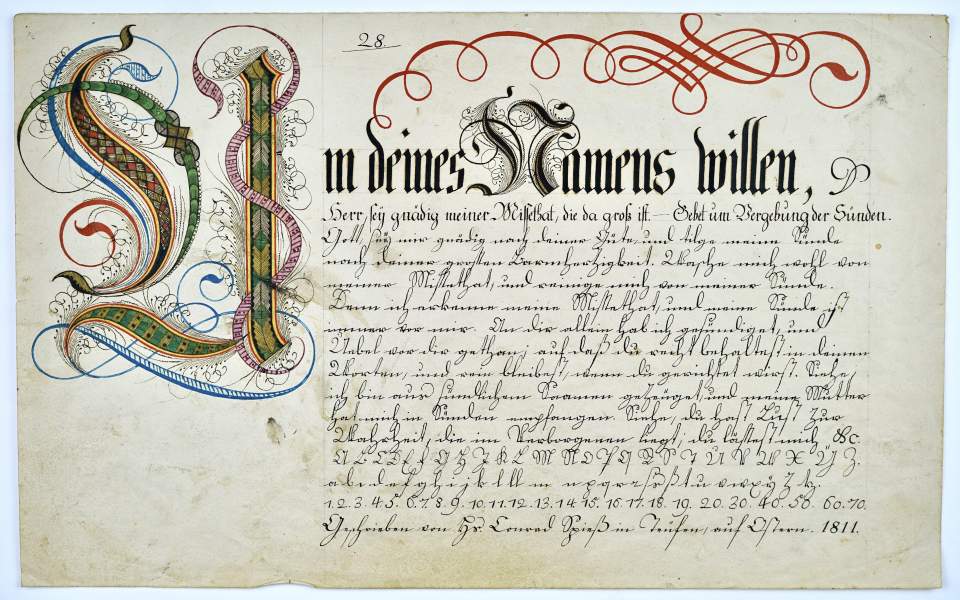 28.
Um deines Namens willen,
Herr, seÿ gnädig meiner Missethat, die da groß ist. — Gebet um Vergebung der Sünden.
Gott, seÿ mir gnädig nach deiner Güte, und tilge meine Sünde
nach deiner grossen Barmherzigkeit. Wasche mich wohl von
meiner Missethat, und reinige mich von meiner Sünde.
Denn ich erkenne meine Missethat, und meine Sünde ist
immer vor mir. An dir allein hab ich gesündiget, und
Uebel vor dir gethan, auf daß du recht behaltest in deinen
Worten, und rein bleibest, wenn du gerichtet wirst. Siehe,
ich bin aus sündlichem Saamen gezeuget, und meine Mutter
hat mich in Sünden empfangen. Siehe, du hast Lust zur
Wahrheit, die im Verborgenen liegt; du lässest mich &c.
A B C D E F G H I K L M N O P Q R S T U V W X Y Z.
a b c d e f g h i j k l m n o p q r s ß t u v w x ÿ z tz.
1. 2. 3. 4. 5. 6. 7. 8. 9. 10. 11. 12. 13. 14. 15. 16. 17. 18. 19. 20. 30. 40. 50. 60. 70.
Geschrieben von Hs. Conrad Spieß in Teufen, auf Ostern. 1811.